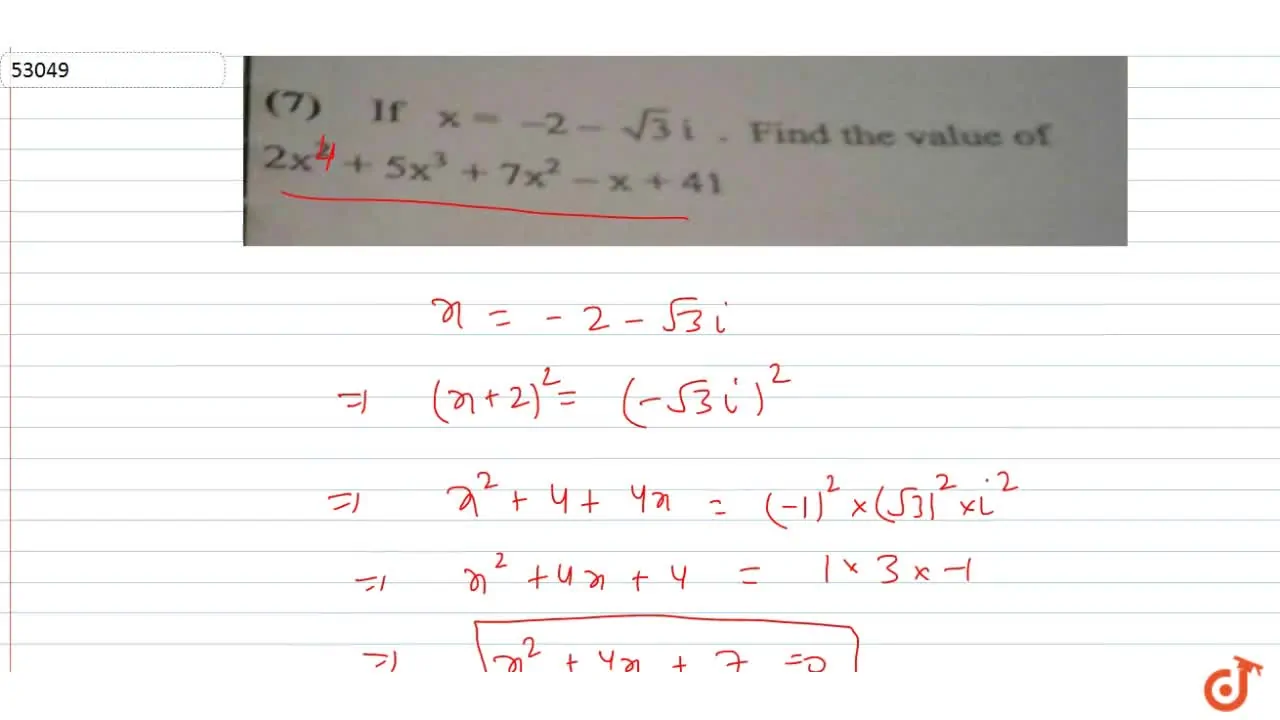 53049
(7) If x = -2 - √3 i . Find the value of
2x⁴ + 5x³ + 7x² - x + 41
x = - 2 - √3 i
⇒ (x + 2)² = (-√3 i)²
⇒ x² + 4 + 4x = (-1)² × (√3)² × i²
⇒ x² + 4x + 4 = 1 × 3 × -1
⇒ x² + 4x + 7 = 0